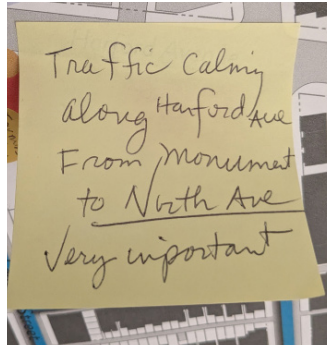 Traffic Calming
along Harford Ave
From Monument
to North Ave
Very important